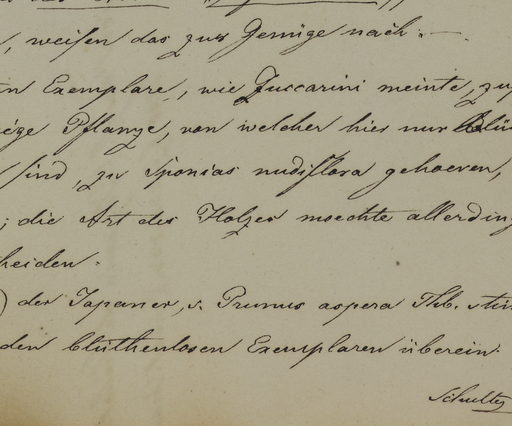 , weisen das zur Genüge nach. —
n Exemplare, wie Zuccarini meinte, zu
ige Pflanze, von welcher hier nur Blü
sind, zu Sponias nudiflora gehoeren,
; die Art des Holzes moechte allerding
heiden.
) der Japaner, s. Prunus aspera Thb. stim
den blüthenlosen Exemplaren überein.
Schultes